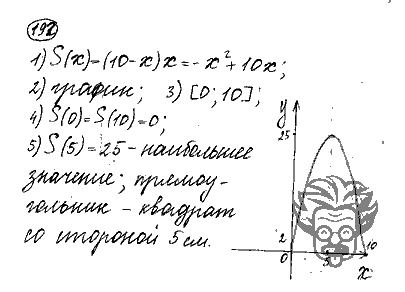 192
1) S(x)=(10-x)x=-x²+10x;
2) график; 3) [0; 10];
4) S(0)=S(10)=0;
5) S(5)=25 - наибольшее
значение; прямоу-
гольник - квадрат
со стороной 5 см.
y
25
2
0
5
10
x